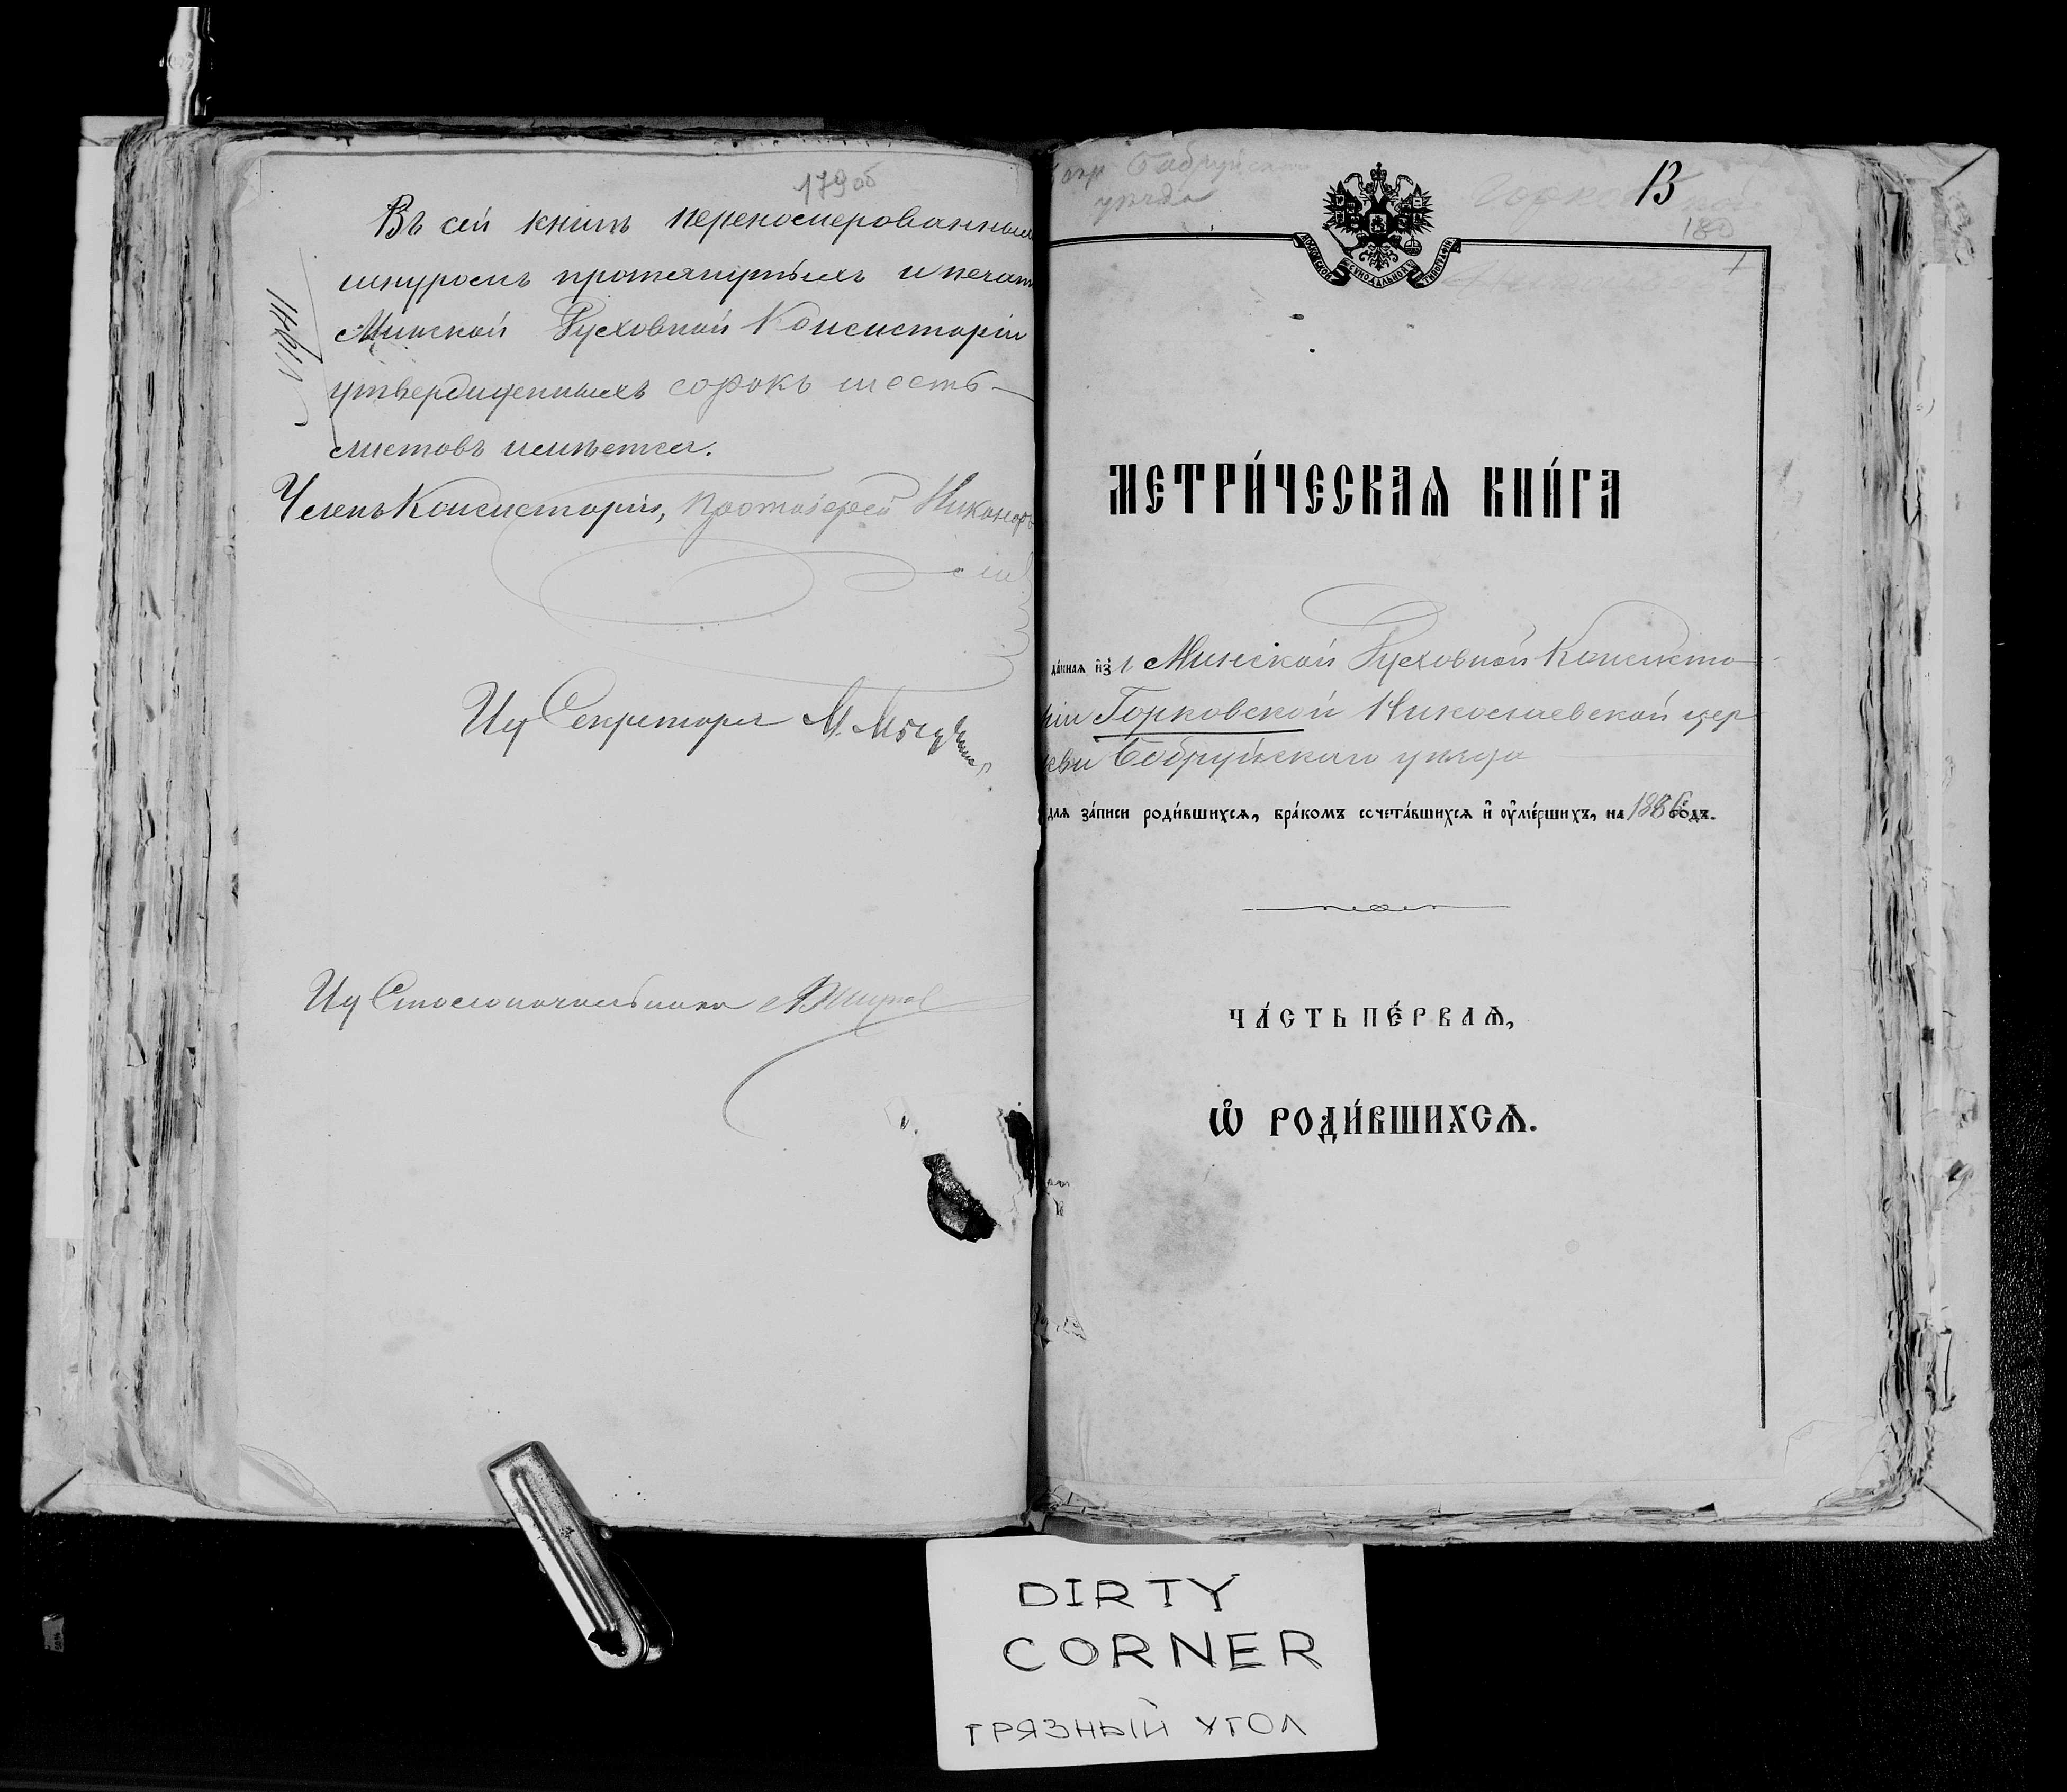 179 об
Въ сей книгѣ переномерованныхъ
шнуромъ протянутыхъ и печатью
Минской Духовной Консисторіи
утвержденныхъ сорокъ шесть
листовъ имѣется.
Членъ Консисторіи, Протоіерей Никаноръ
Ид Секретаря М.
Ид Столоначальника
Бобруйского
уезда
13
180
1
МОСКОВСКОЙ СѴНОДАЛЬНОЙ ТИПОГРАФІИ
МЕТРИ́ЧЕСКАѦ КНИ́ГА
да́ннаѧ и҆зъ Минской Духовной Консисто
ріи Горковской Николаевской цер
кви Бобруйскаго уѣзда
длѧ за́писи роди́вшихсѧ, бра́комъ сочета́вшихсѧ и҆ ᲂу҆ме́ршихъ, на 1886 го́дъ.
ЧА́СТЬ ПЕ́РВАѦ,
Ѽ РОДИ́ВШИХСѦ.
DIRTY
CORNER
ГРЯЗНЫЙ УГОЛ